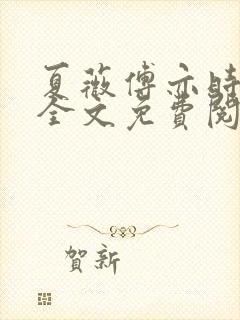 夏薇傅亦時
全文免費閱
賀新